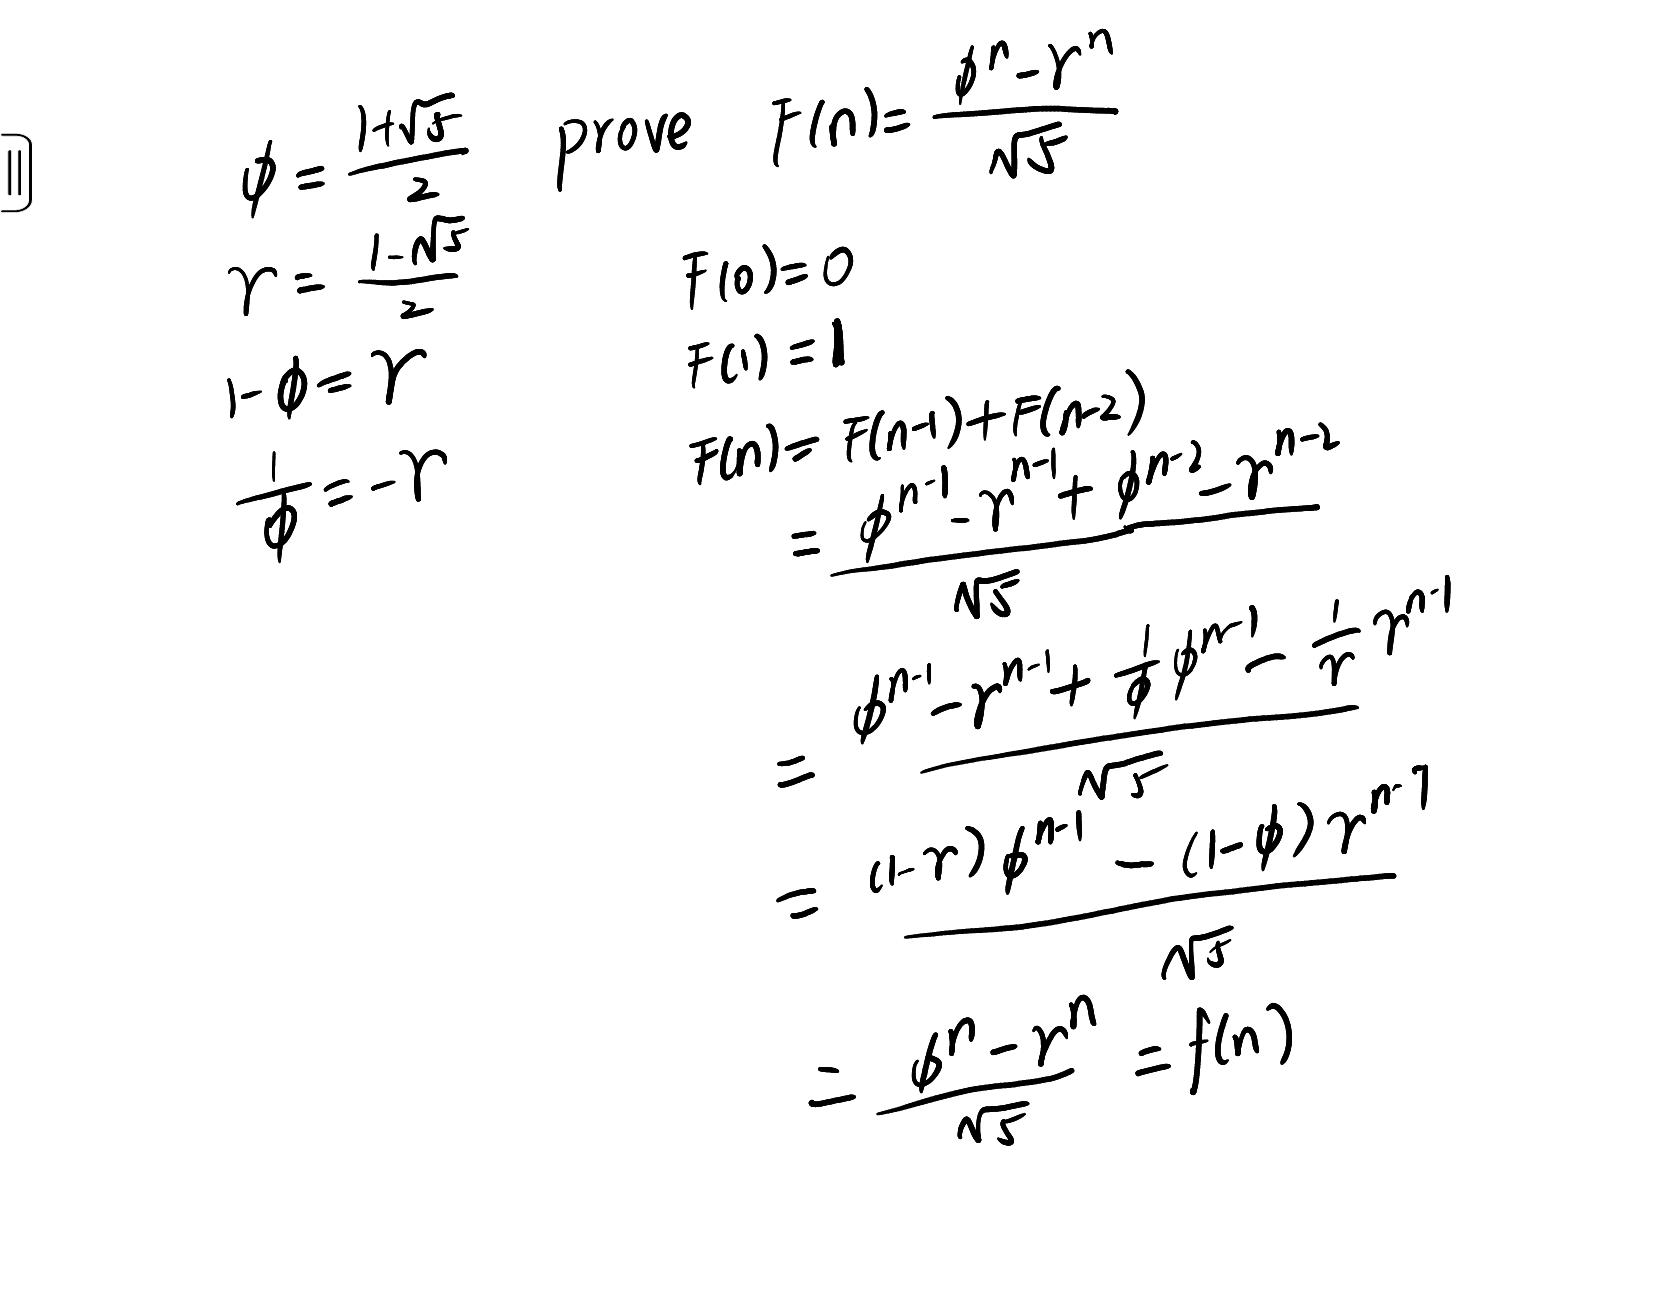 φ = (1+√5)/2 prove F(n) = (φ^n - r^n)/√5
r = (1-√5)/2
1-φ = r
1/φ = -r
F(0) = 0
F(1) = 1
F(n) = F(n-1) + F(n-2)
= (φ^(n-1) - r^(n-1) + φ^(n-2) - r^(n-2))/√5
= (φ^(n-1) - r^(n-1) + (1/φ)φ^(n-1) - (1/r)r^(n-1))/√5
= ((1-r)φ^(n-1) - (1-φ)r^(n-1))/√5
= (φ^n - r^n)/√5 = f(n)